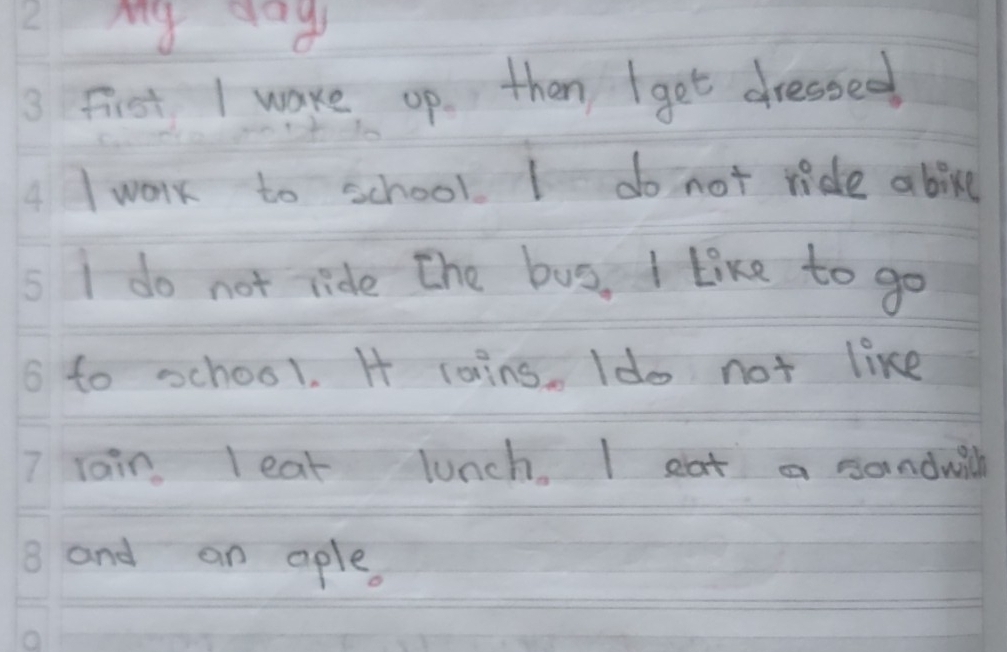 2 My day
3 First, I wake up. then, I get dressed.
4 I walk to school. I do not ride a bike
5 I do not ride the bus. I Like to go
6 to school. It rains. I do not like
7 rain. I eat lunch. I eat a sandwich
8 and an aple.
9